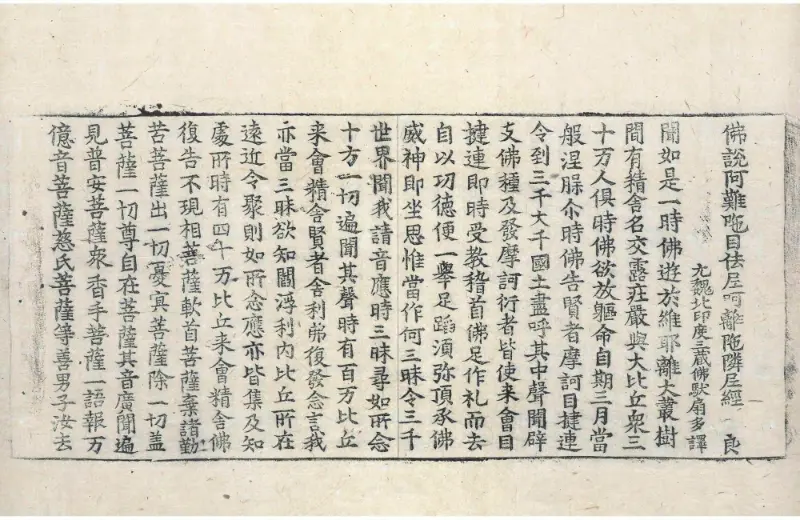 佛說阿難陁目佉尼呵離陁隣尼經 良
元魏北印度三藏佛馱扇多譯
聞如是一時佛遊於維耶離大叢樹
間有精舍名交露莊嚴與大比丘衆三
十万人俱時佛欲放軀命自期三月當
般涅洹尒時佛告賢者摩訶目揵連
令到三千大千國土盡呼其中聲聞辟
支佛種及發摩訶衍者皆使来會目
揵連即時受教稽首佛足作礼而去
自以功德便一舉足蹈須弥頂承佛
威神即坐思惟當作何三昧令三千
世界聞我請音應時三昧尋如所念
十方一切遍聞其聲時有百万比丘
来會精舍賢者舍利弗復發念言我
亦當三昧欲知閻浮利内比丘所在
遠近令聚則如所念應亦皆集及知
處所時有四十万比丘来會精舍佛
復告不現相菩薩軟首菩薩棄諸勤
苦菩薩出一切憂冥菩薩除一切盖
菩薩一切尊自在菩薩其音廣聞遍
見普安菩薩衆香手菩薩一語報万
億音菩薩慈氏菩薩等善男子汝去